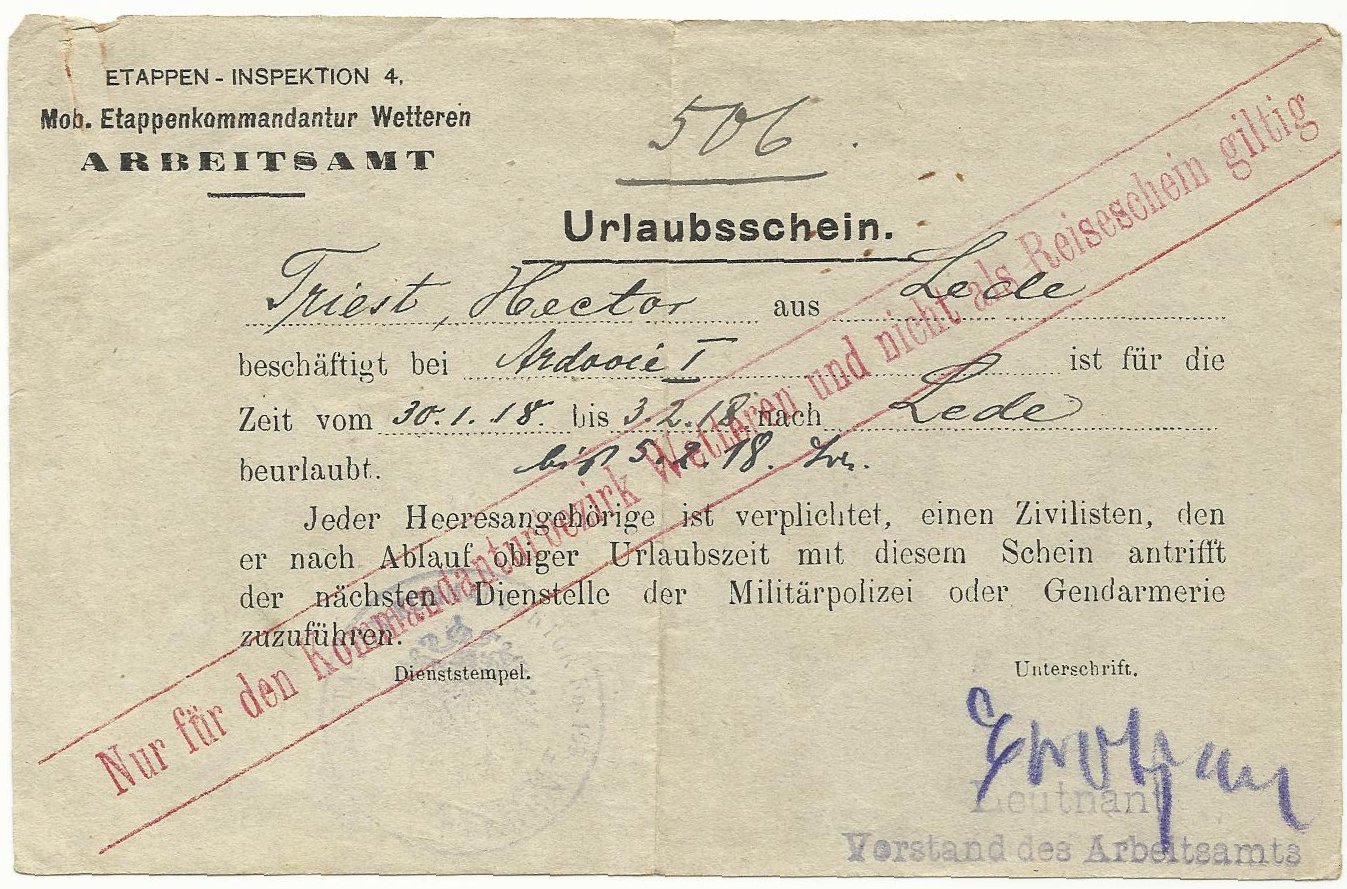 ETAPPEN - INSPEKTION 4.
Mob. Etappenkommandantur Wetteren
ARBEITSAMT
506.
Urlaubsschein.
Triest, Hector aus Lede
beschäftigt bei Ardooie I ist für die
Zeit vom 30.1.18. bis 3.2.18 nach Lede
beurlaubt. bis 5.2.18.
Jeder Heeresangehörige ist verplichtet, einen Zivilisten, den
er nach Ablauf obiger Urlaubszeit mit diesem Schein antrifft
der nächsten Dienstelle der Militärpolizei oder Gendarmerie
zuzuführen.
Dienststempel. Unterschrift.
Leutnant
Vorstand des Arbeitsamts
Nur für den Kommandanturbezirk Wetteren und nicht als Reiseschein giltig